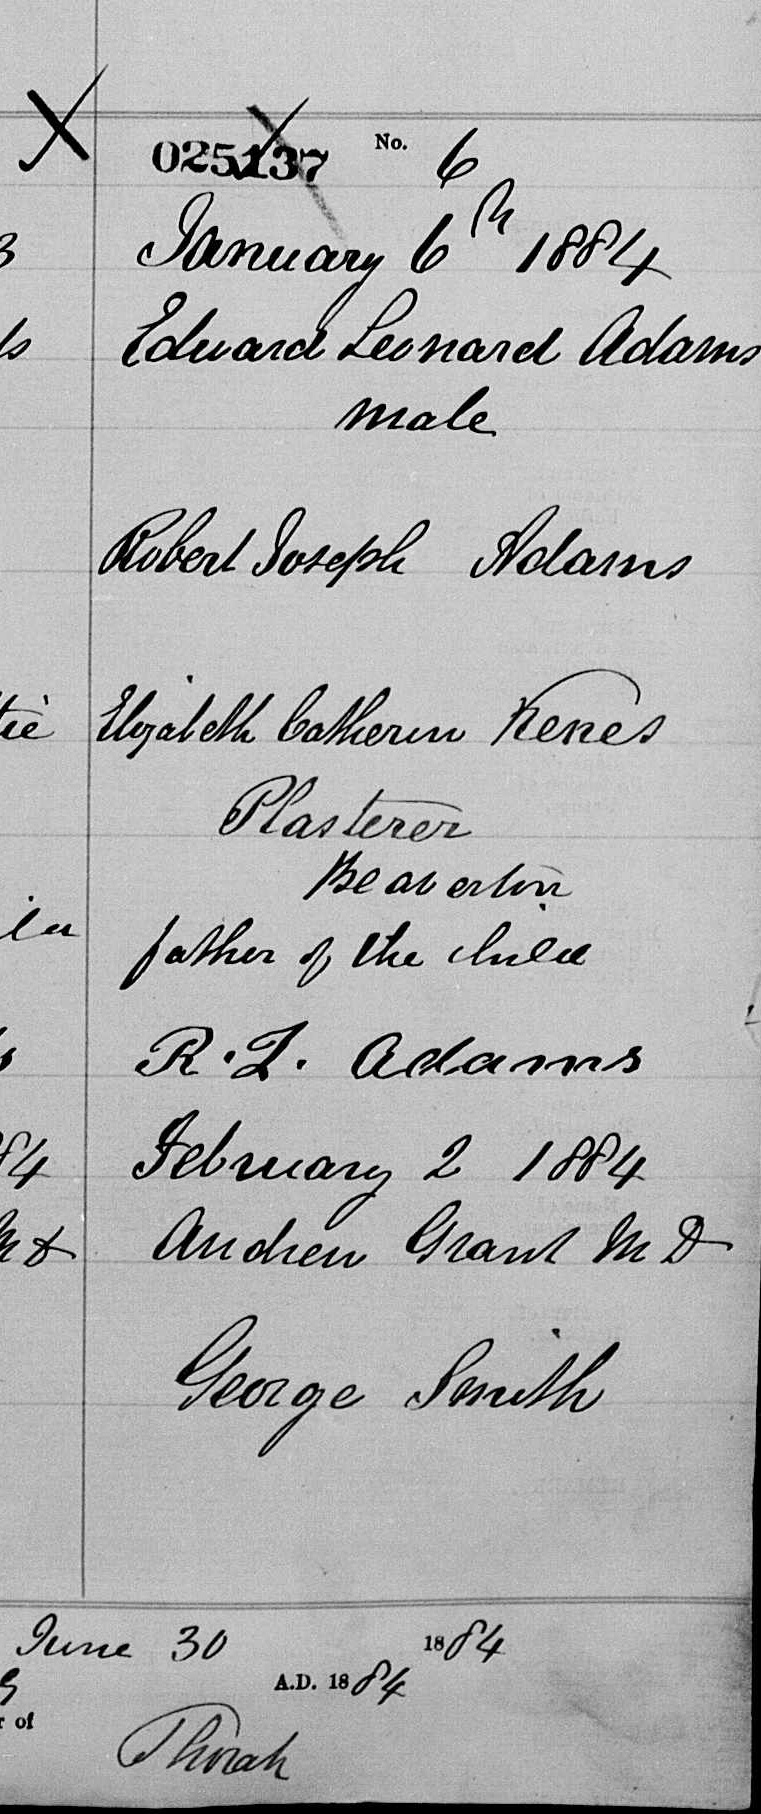 025137 No. 6
3 January 6th 1884
ds Edward Leonard Adams
male
Robert Joseph Adams
tie Elizabeth Catherin
Plasterer
Beaverton
father of the child
s R. J. Adams
84 February 2 1884
M D Andrew Grant M D
George Smith
June 30 1884
9 A.D. 1884
r of
Thorah